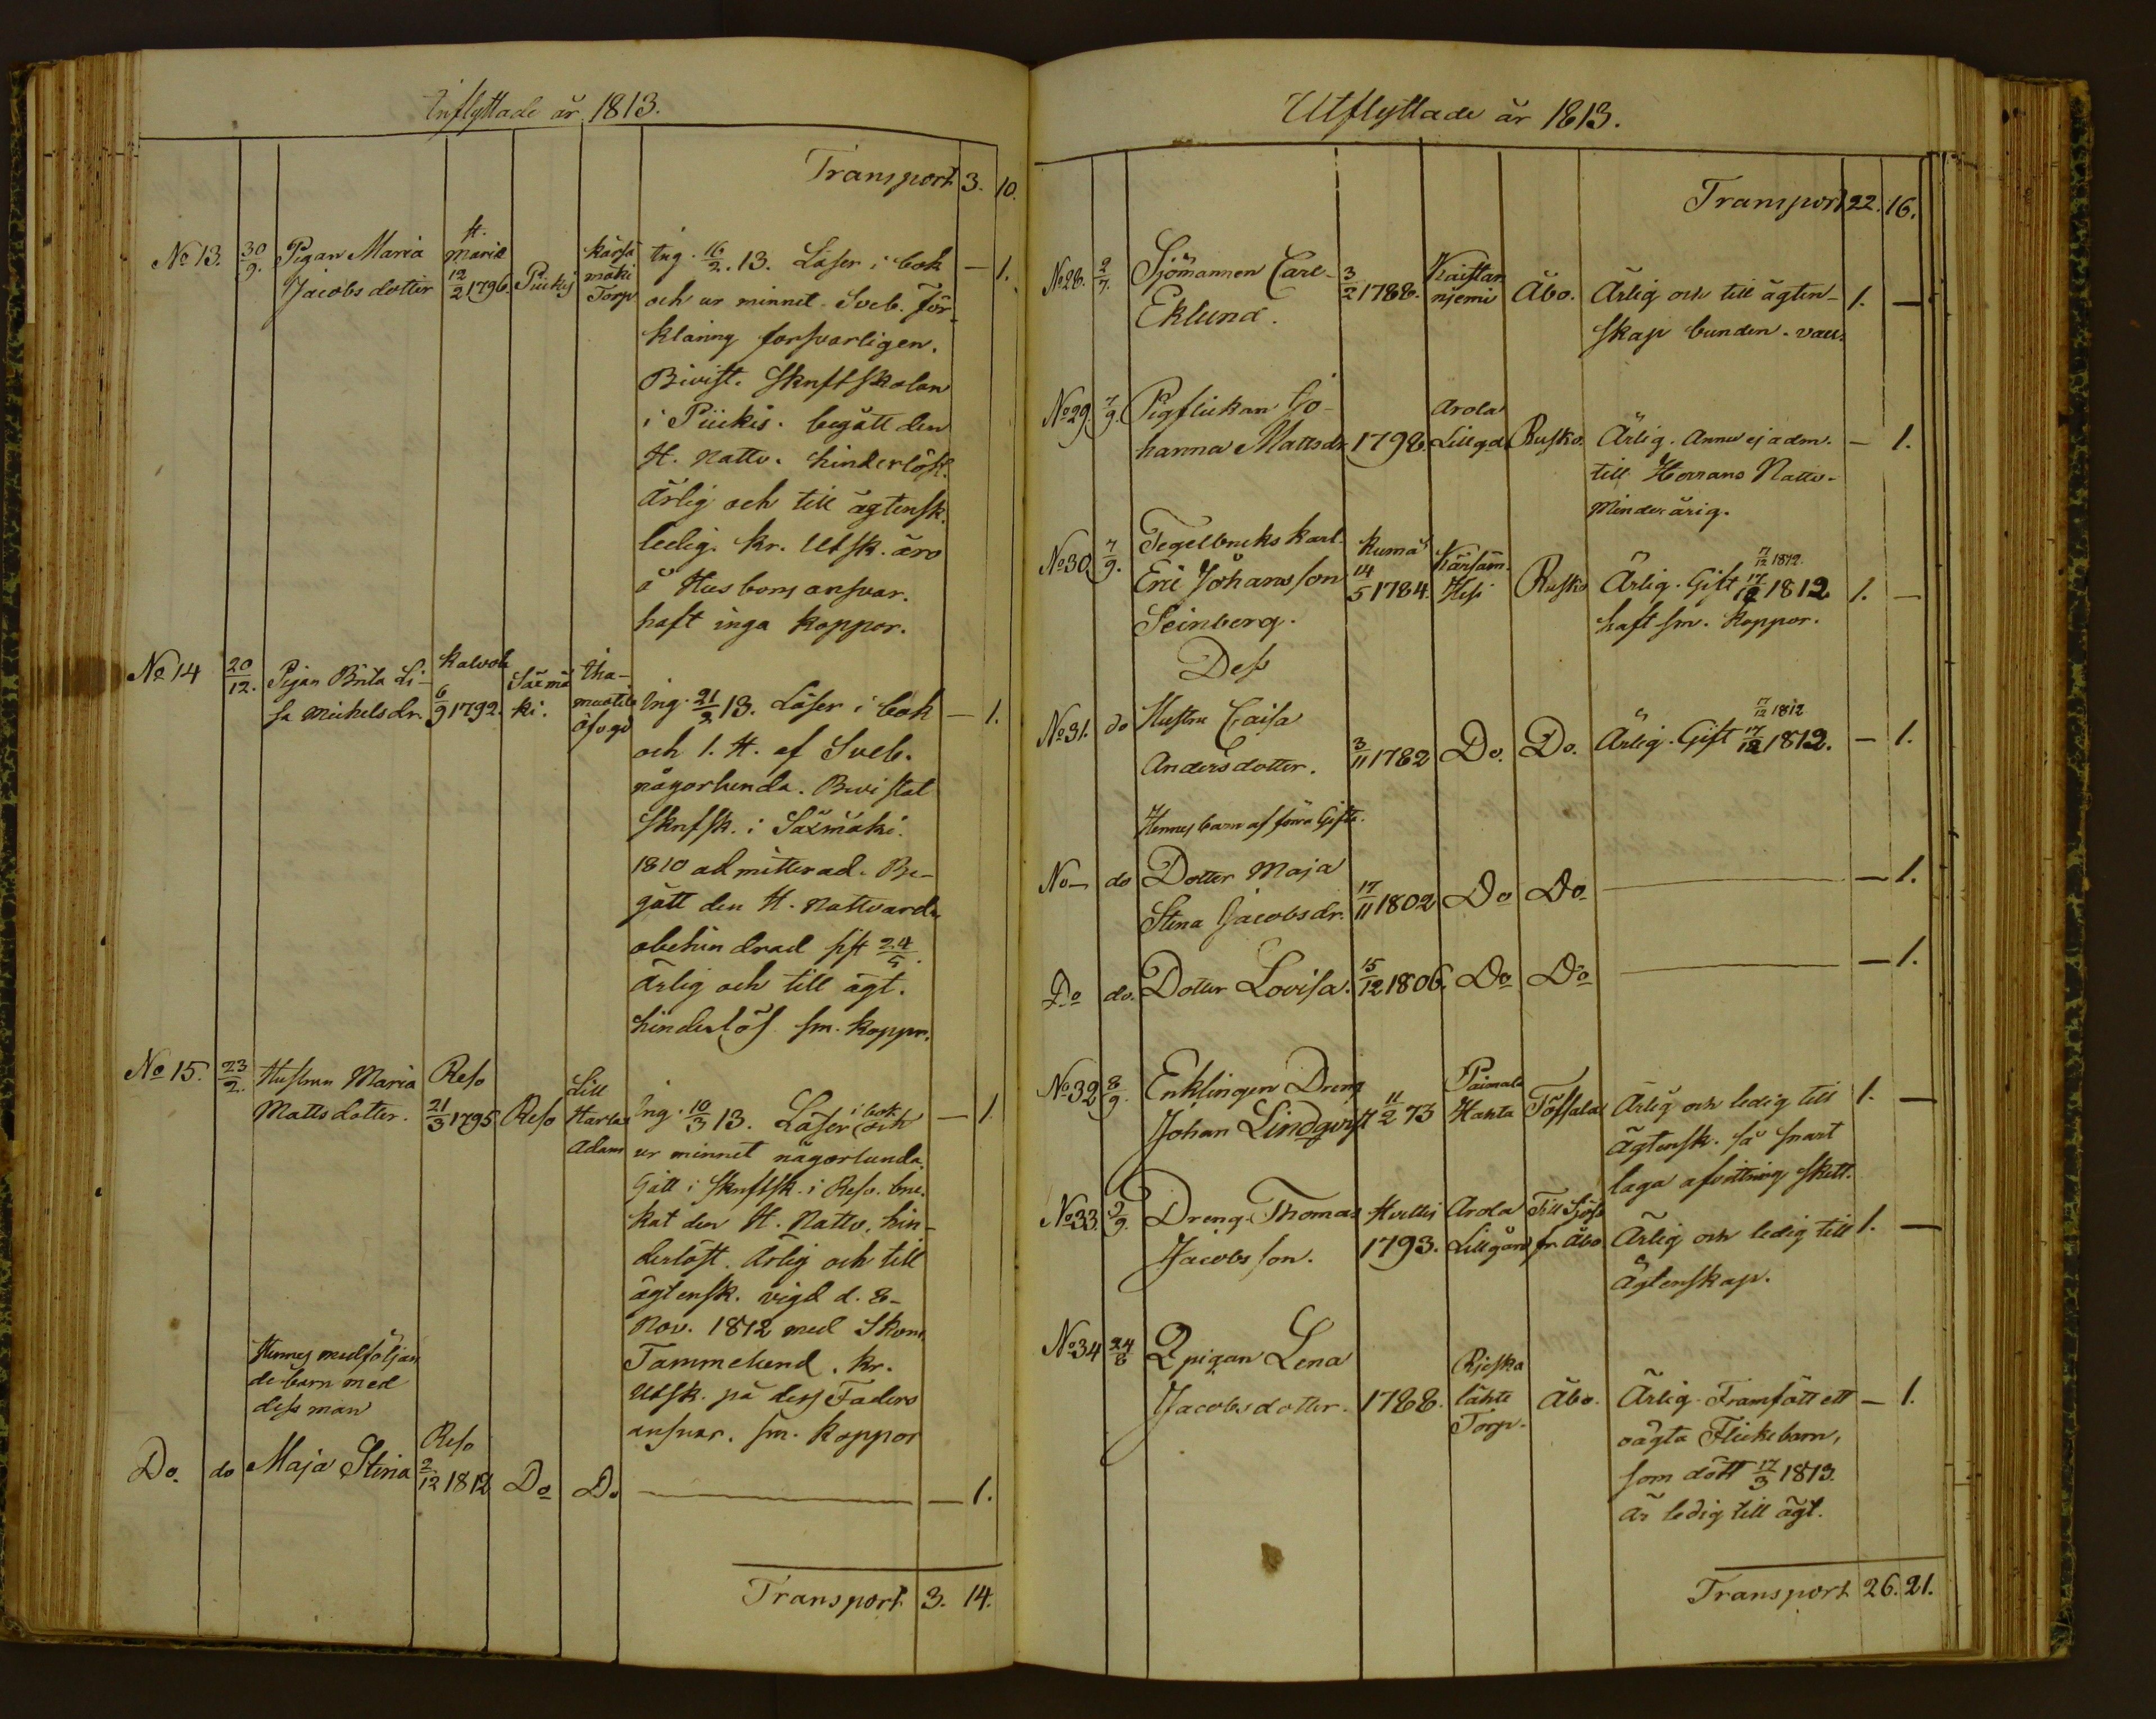 Inflyttade år 1813.
Transport 3. 10.
No 13. 30/9. Pigan Maria St. Mariæ Kärsä
Jacobs dotter 12/2 1796. Piikis mäki Torp
Ing. 16/2. 13. Läser i bok — 1.
och ur minnet Sveb. För-
klaring forsvarligen.
Bivist. Skriftskolan
i Piikis. begått den
H. Nattv. hinderlöst.
Ärlig och till ägtensk.
ledig. Kr. Utsk. äro
å Husbons ansvar.
haft inga Koppor.
No 14 20/12. Pigan Brita Li- Kalvola Säxmä
sa Michelsdr. 6/9 1792. ki.
Ing. 21/2 13. Läser i bok — 1.
och 1. H. af Sveb.
någorlunda. Bevistat
Skrifsk. i Säxmäki.
1810 admitterad. Be-
gått den H. Nattvarde
obehindrad sist 24/5.
Ärlig och till ägt.
hinderlös. sm. koppor.
No 15. 23/2. Hustrun Maria Reso Lill
Matts dotter. 21/3 1795 Reso Harla Adam
Ing. 10/3 13. Läser i bok och — 1.
ur minnet någorlunda.
Gått i Skriftsk. i Reso. bru-
kat den H. Nattv. hin-
derlöst. Ärlig och till
ägtensk. vigd d. 8-
Nov. 1812 med Skom.
Tammelund. Kr.
Utsk. på dess Faders
ansvar. sm. Koppor
Hennes medföljan
de barn med
dess man
Do. do Maja Stina Reso 2/12 1812 Do Do — — 1.
Transport 3. 14.
Utflyttade år 1813.
Transport 22. 16.
No 28. 2/7. Sjömannen Carl 3/2 1788. Kaistar Åbo. Ärlig och till ägten- 1. —
Eklund. njemi skap bunden. vacc.
No 29. 7/9. Pigflickan Jo- Arola
hanna Mattsdr. 1798. Lillgd. Rusko. Ärlig. Annu ej adm. — 1.
till Herrans Nattv.
Minderårig.
No 30 7/9. Tegelbrukskarl. Kumå Kärsäm. 17/12 1812.
Eric Johansson 14/5 1784. Hesi Rusko Ärlig. Gift 17/12 1812 1. —
Seinberg. haft sm. Koppor.
Dess
No 31. do Hustru Caisa 17/12 1812
Andersdotter. 3/11 1782 Do. Do. Ärlig. Gift 17/12 1812. — 1.
Hennes barn af förra Gifte.
No — do Dotter Maja
Stina Jacobsdr. 17/11 1802 Do Do — — 1.
Do do. Dotter Lovisa. 15/12 1806. Do Do — — 1.
No 32 8/9. Enklingen Dreng Paimala
Johan Lindqvist 11/2 73 Hahta Töfsala Ärlig och ledig till 1. —
Ägtensk. så snart
laga afvittring skett.
No 33. 9/9. Dreng. Thomas Huittis Arola Till Sjöss
Jacobsson. 1793. Lillgård fr. Åbo Ärlig och ledig till 1. —
Ägtenskap.
No 34 24/8 Qpigan Lena Rjeska
Jacobsdotter. 1788. lähte Torp. Åbo. Ärlig. Framfött ett — 1.
oägta Flickebarn,
som dött 17/3 1813.
är ledig till ägt.
Transport 26. 21.